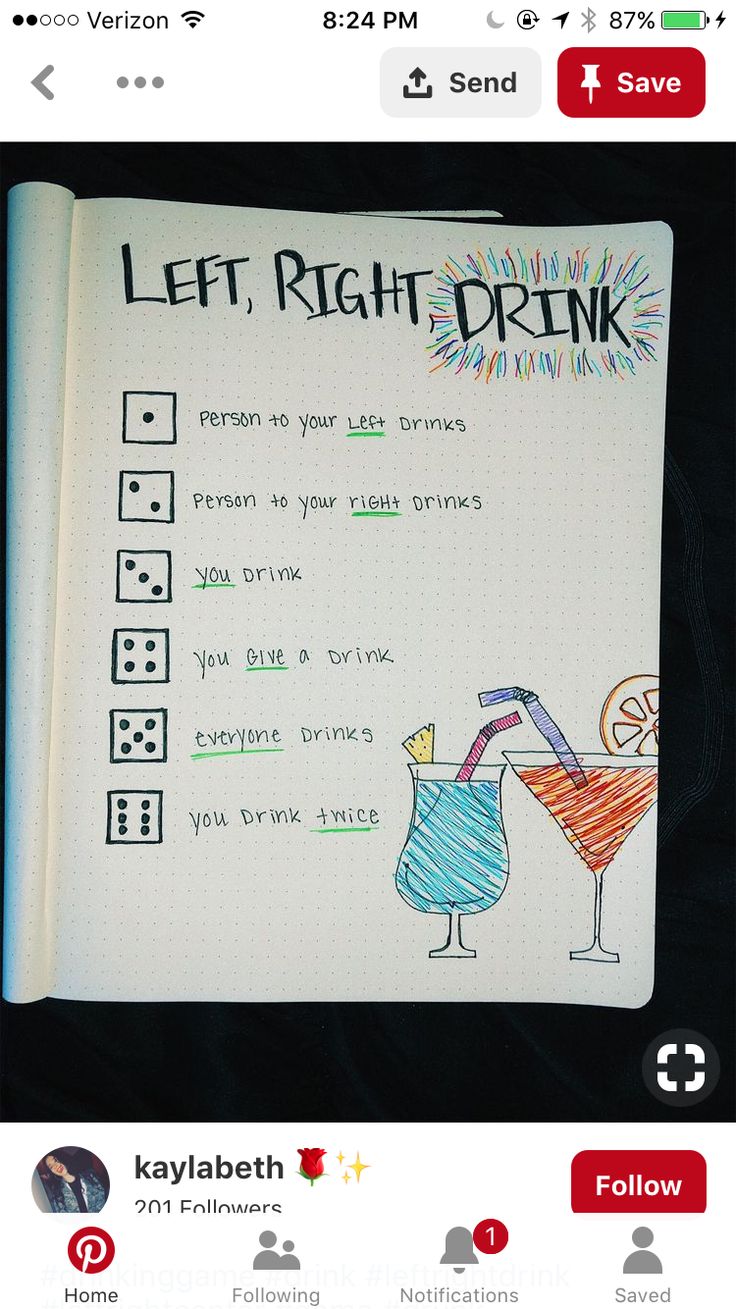 Verizon 8:24 PM 87%
Send Save
LEFT, RIGHT, DRINK
Person to your Left Drinks
Person to your riGHt Drinks
you Drink
you GIVE a Drink
everyone Drinks
you Drink twice
kaylabeth
Follow
201 Followers
1
#drinkinggame #drink #leftrightdrink
Home Following Notifications Saved